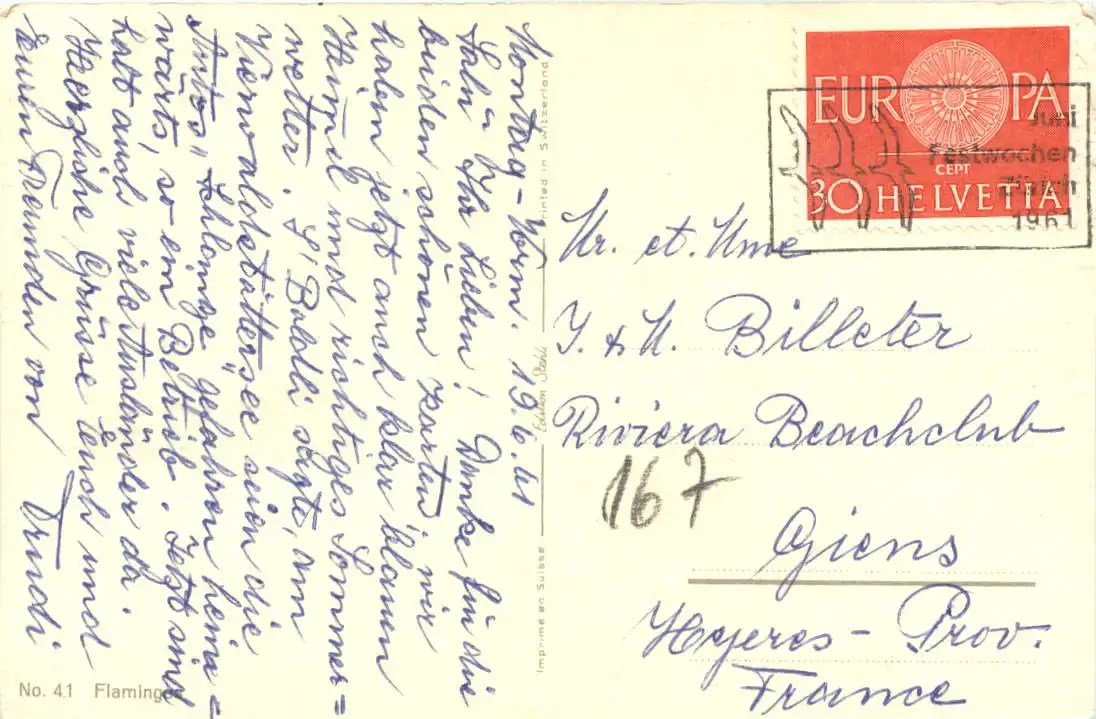 Montag-Vorm. 19.6.61
Salü Ihr Lieben! Danke für die
beiden schönen Karten, wir
haben jetzt auch klar blauen
Himmel und richtiges Sommer=
wetter. S'Baldli sagte, am
Vierwaldstättersee seien die
"Autos" Schlange gefahren heim=
wärts, so ein Betrieb. Jetzt sind
halt auch viele Ausländer da.
Herzliche Grüsse Euch und
Euren Freunden von Trudi
No. 41 Flamingos
Imprimé en Suisse Edition Stehli Printed in Switzerland
EUROPA
CEPT
30 HELVETIA
Juni
Festwochen
Zürich
1961
Mr. et. Mme
J. & M. Billeter
Riviera Beachclub
167
Giens
Hyeres - Prov.
France